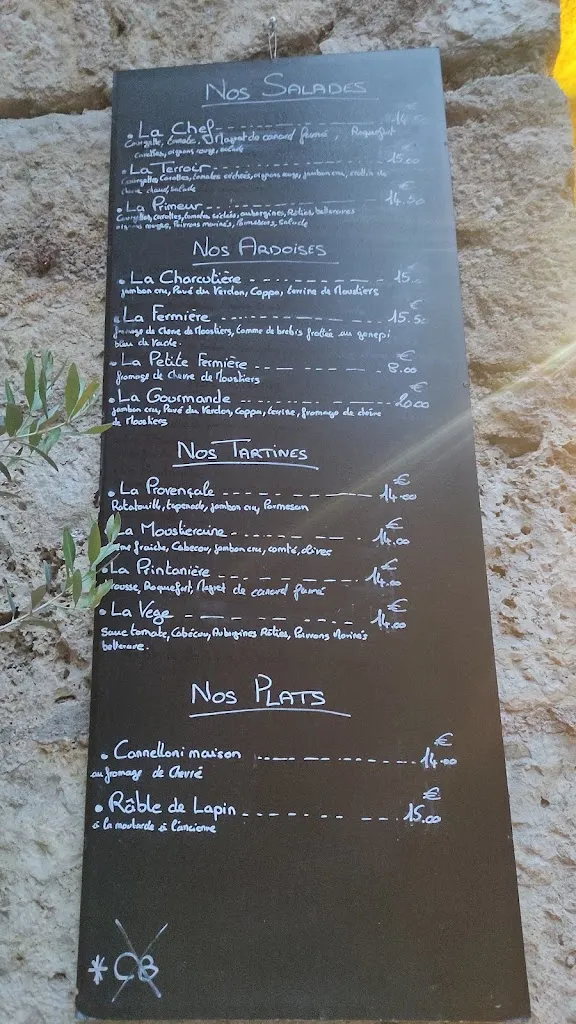 Nos Salades
• La Chef €
Courgette, tomate, Magret de canard fumé, Roquefort
Carottes, oignons rouge, salade
• La Terroir 15.00
Courgettes, Carottes, tomates séchées, oignons rouge, jambon cru, crottin de
chèvre chaud, salade
• La Primeur € 14.50
Courgettes, carottes, tomates séchées, aubergines, Rôties, betteraves
oignons rouges, Poivrons marinés, Parmesan, Salade
Nos Ardoises
• La Charcutière 15.
jambon cru, Pavé du Verdon, Coppa, terrine de Moustiers
• La Fermière € 15.50
fromage de Chèvre de Moustiers, tomme de brebis frottée au genepi
bleu de Vache.
• La Petite Fermière € 8.00
fromage de Chevre de Moustiers
• La Gourmande € 20.00
jambon cru, Pavé du Verdon, Coppa, terrine, fromage de chèvre
de Moustiers
Nos Tartines
• La Provençale € 14.00
Ratatouille, tapenade, jambon cru, Parmesan
La Moustieraine € 14.00
fraiche, Cabecou, jambon cru, comté, olives
• La Printanière € 14.00
Roquefort, Magret de canard fumé
• La Vege € 14.00
Sauce tomate, Cabécou, Aubergines Rôties, Poivrons Marinés
betterave.
Nos Plats
• Cannelloni maison € 14.00
au fromage de Chevré
• Râble de Lapin € 15.00
à la moutarde à l'ancienne
* CB